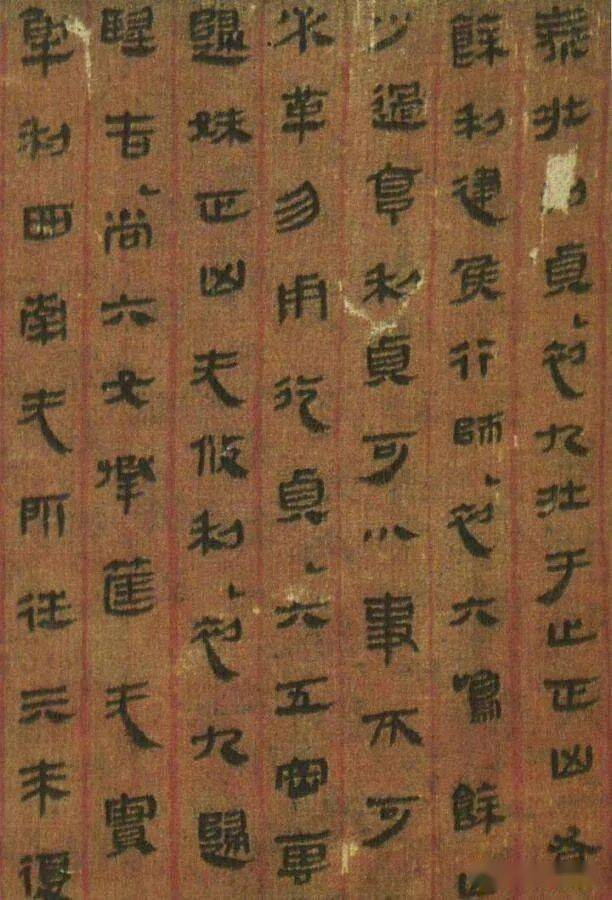 泰壯利貞初九壯于止正凶有
餘利建侯行師初六鳴餘凶
少過亨利貞可小事不可
必革勿用永貞六五密雲
歸妹正凶无攸利初九歸
朢吉尚六女承筐无實
解利西南无所往亓來復